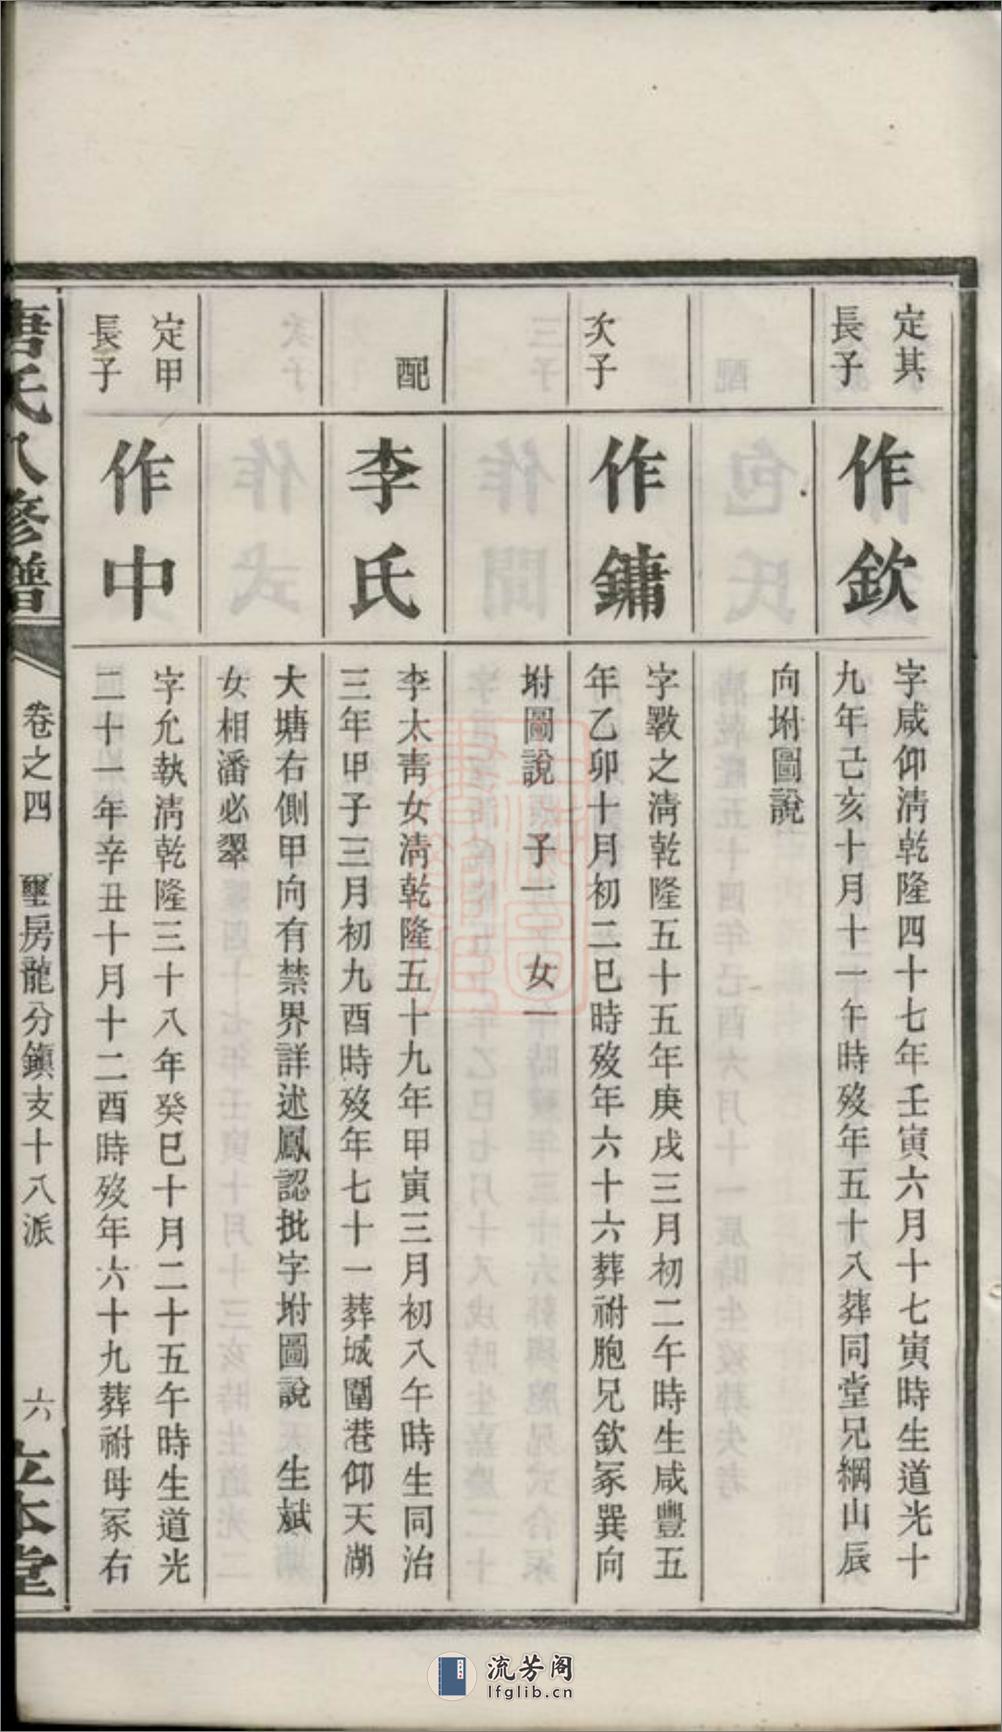 定其
長子
作欽
字咸仰淸乾隆四十七年壬寅六月十七寅時生道光十
九年己亥十月十一午時歿年五十八葬同堂兄綱山辰
向坿圖說
次子
作鏞
字斁之淸乾隆五十五年庚戌三月初二午時生咸豐五
年乙卯十月初二巳時歿年六十六葬祔胞兄欽冢巽向
坿圖說 子一 女一
配
李氏
李太靑女淸乾隆五十九年甲寅三月初八午時生同治
三年甲子三月初九酉時歿年七十一葬城圍巷仰天湖
大塘右側甲向有禁界詳述鳳認批字坿圖說 生斌
女相潘必翠
定甲
長子
作中
字允執淸乾隆三十八年癸巳十月二十五午時生道光
二十一年辛丑十月十二酉時歿年六十九葬祔母冢右
唐氏八修譜
卷之四 璽房龍分鎭支十八派
六
立本堂
流芳阁
lfglib.cn